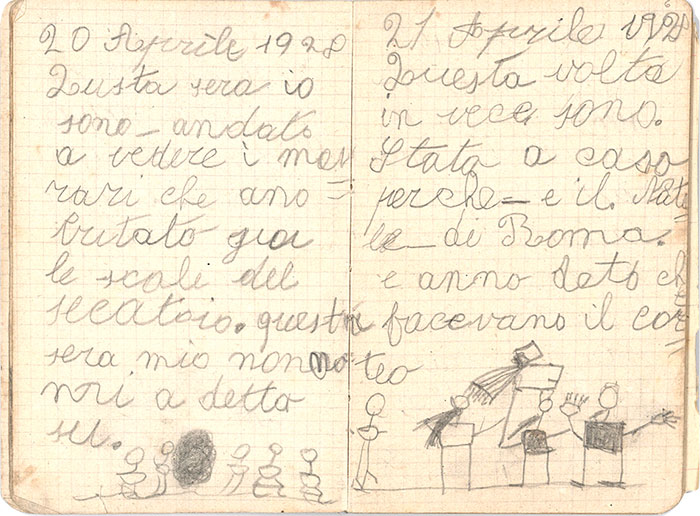 20 Aprile 1928
Questa sera io
sono andato
a vedere i mu
rari che ano
butato giu
le scale del
secatoio. questa
sera mio nonno
mi a detto
sei.
21 Aprile 1928
Questa volta
in vece sono.
Stato a casa
perche e il. Nata
le di Roma.
e anno deto che
facevano il cor
teo